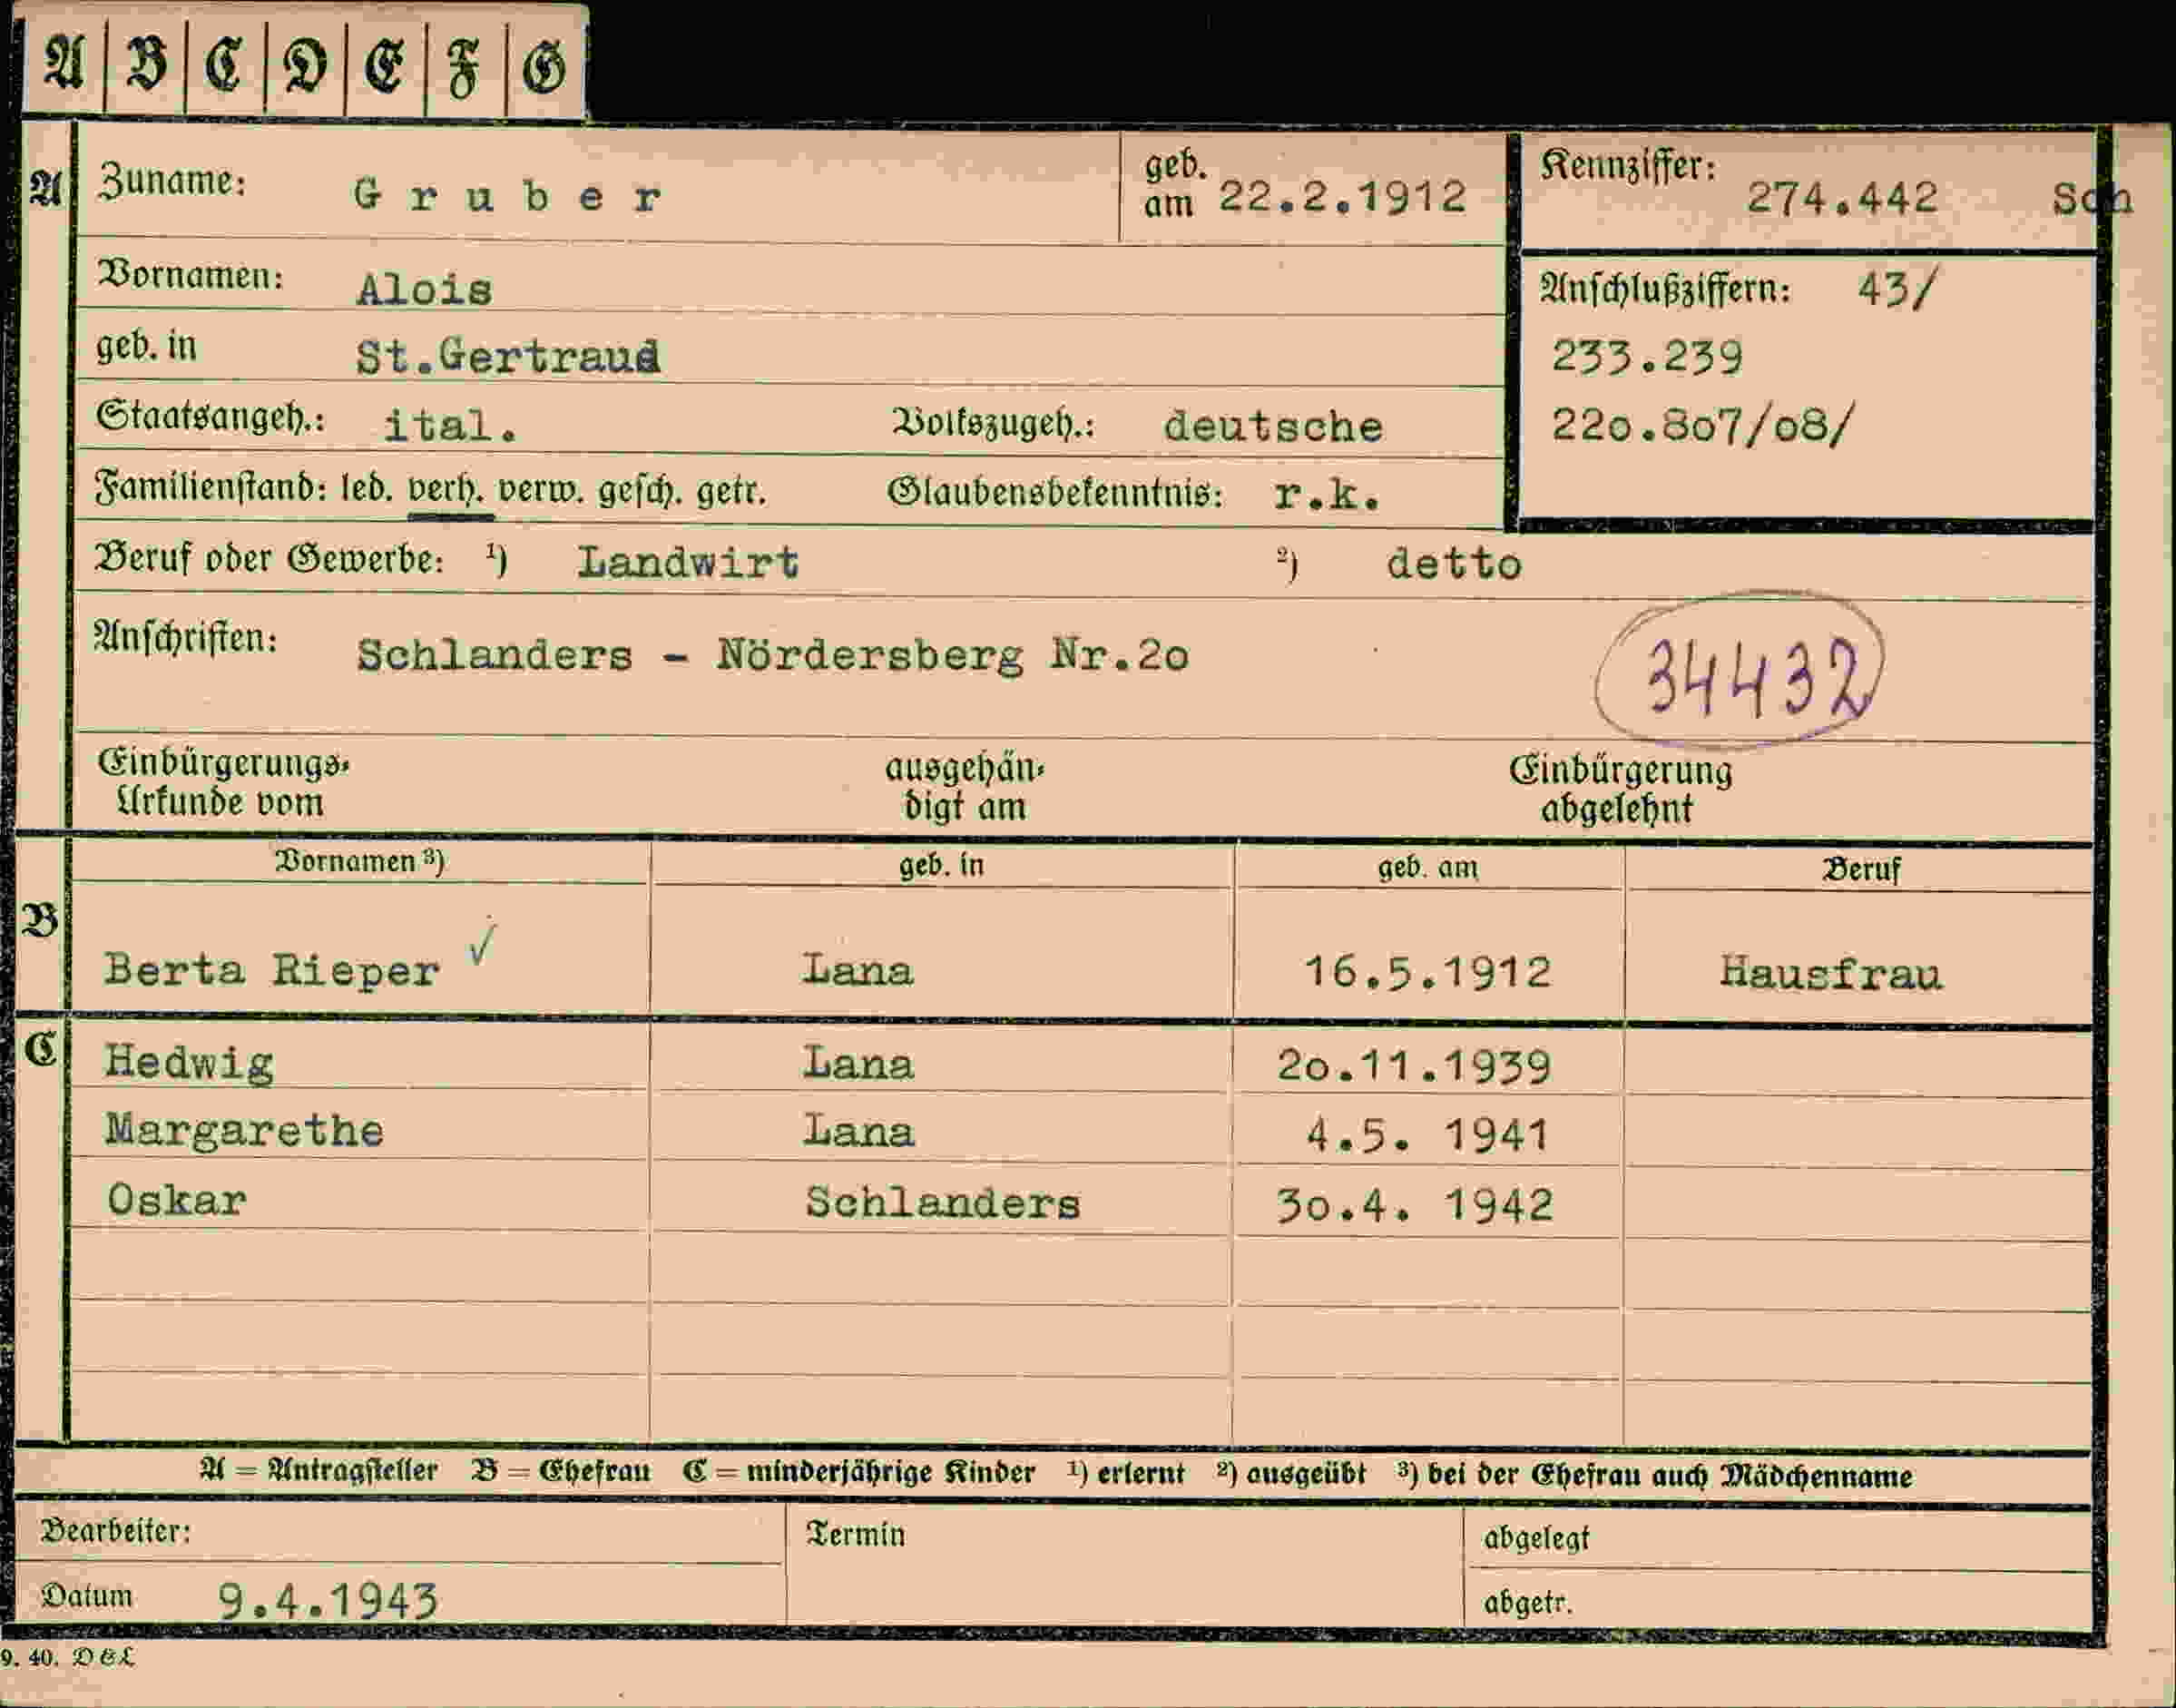 A B C D E F G
A Zuname: Gruber geb. am 22.2.1912 Kennziffer: 274.442 Sch
Vornamen: Alois Anschlußziffern: 43/
geb. in St.Gertraud 233.239
Staatsangeh.: ital. Volkszugeh.: deutsche 220.807/08/
Familienstand: led. verh. verw. gesch. getr. Glaubensbekenntnis: r.k.
Beruf oder Gewerbe: ¹) Landwirt ²) detto
Anschriften: Schlanders - Nördersberg Nr.20 34432
Einbürgerungs- ausgehän- Einbürgerung
Urkunde vom digt am abgelehnt
Vornamen ³) geb. in geb. am Beruf
B Berta Rieper ✓ Lana 16.5.1912 Hausfrau
C Hedwig Lana 20.11.1939
Margarethe Lana 4.5. 1941
Oskar Schlanders 30.4. 1942
A = Antragsteller B = Ehefrau C = minderjährige Kinder ¹) erlernt ²) ausgeübt ³) bei der Ehefrau auch Mädchenname
Bearbeiter: Termin abgelegt
Datum 9.4.1943 abgetr.
9. 40. D & L